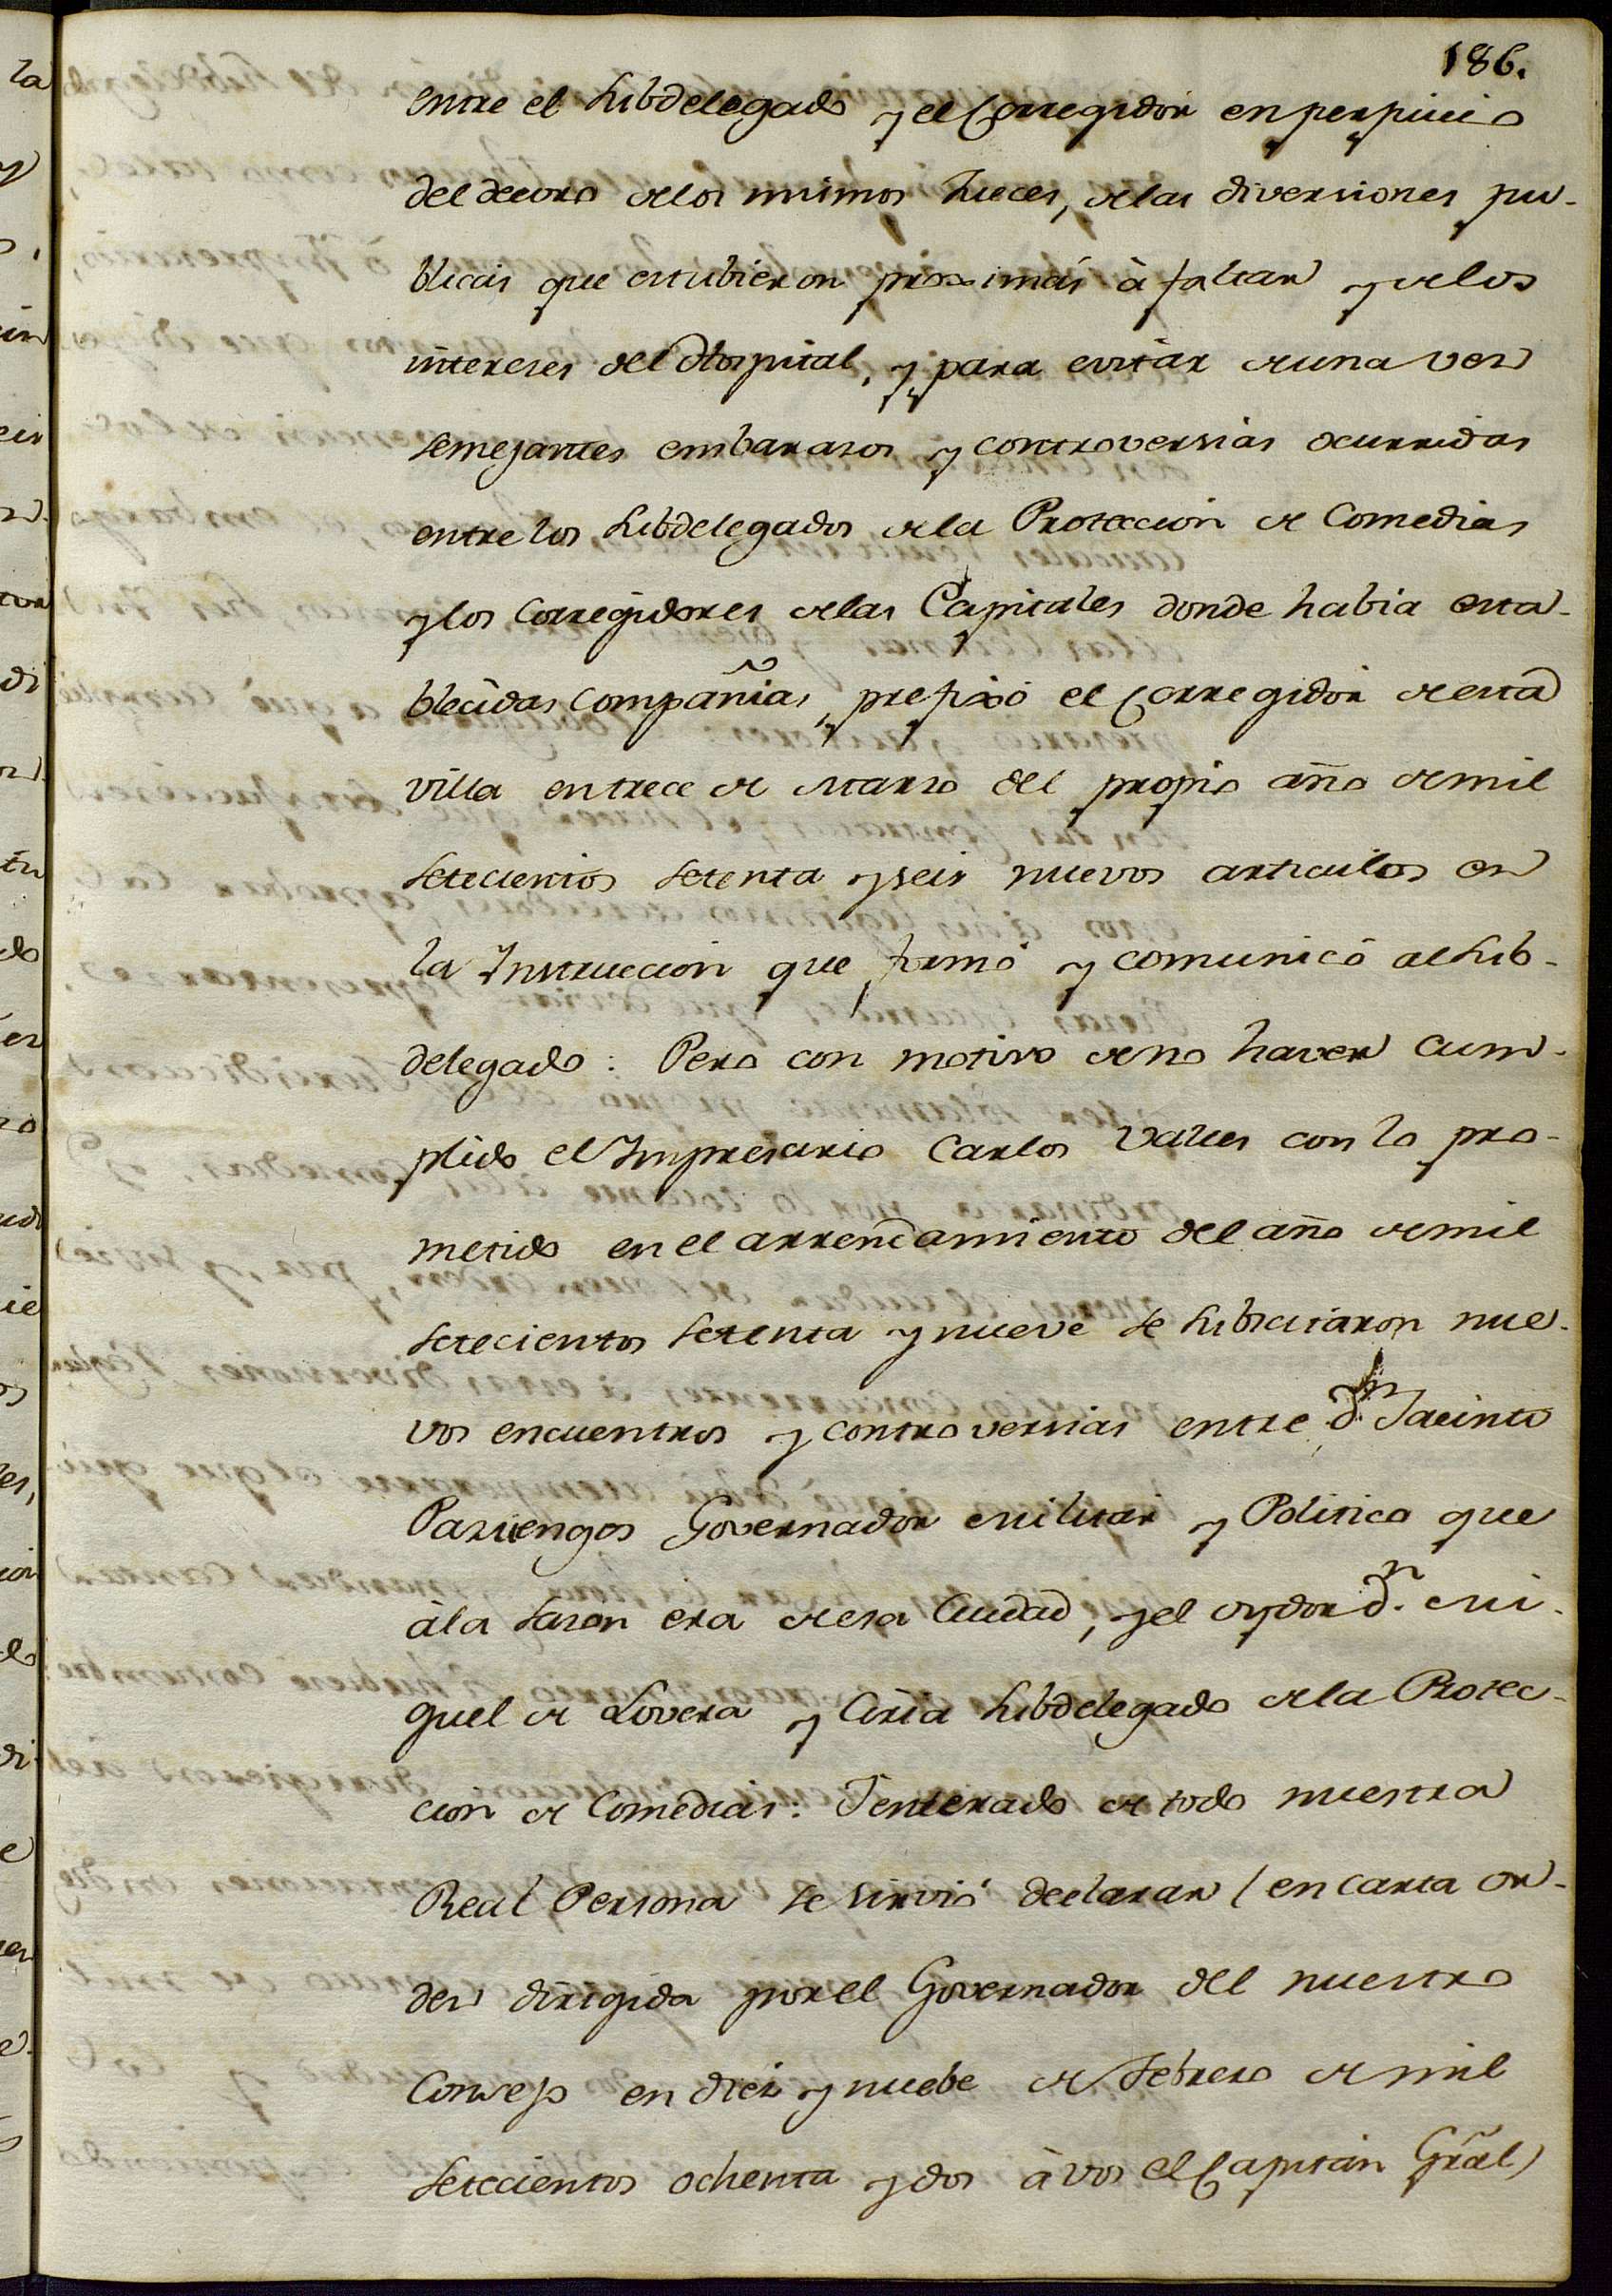 186.
entre el Subdelegado y el Corregidor en perjuicio
del decoro de los mismos Jueces, de las diversiones pu-
blicas que estubieron proximas à faltar y de los
intereses del Hospital, y para evitar de una vez
semejantes embarazos y controversias ocurridas
entre los Subdelegados de la Proteccion de Comedias
y los Corregidores de las Capitales donde habia esta-
blecidas Compañias, prefixó el Corregidor de esta
villa en trece de Marzo del propio año de mil
setecientos setenta y seis nuevos articulos en
la Instruccion que formó y comunicó al Sub-
delegado: Pero con motivo de no haver cum-
plido el Impresario Carlos Valles con lo pro-
metido en el arrendamiento del año de mil
setecientos setenta y nueve se subscitaron nue-
vos encuentros y controversias entre dn. Jacinto
Pazuengos Governador militar y Politico que
à la sazon era de esa Ciudad, y el oydor dn. Mi-
guel de Lovera y Ciria Subdelegado de la Protec-
cion de Comedias: Y enterado de todo nuestra
Real Persona se sirvió declarar (en carta or-
den dirigida por el Governador del nuestro
Consejo en diez y nuebe de Febrero de mil
setecientos ochenta y dos à vos el Capitan Gral)